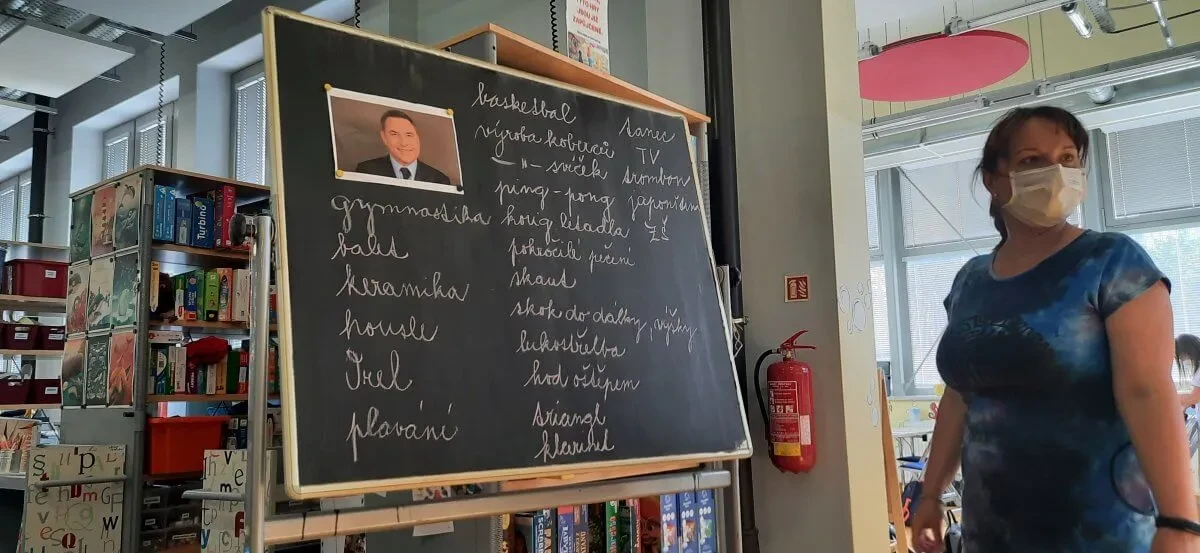 gymnastika
balet
keramika
housle
Irel
plavání
basketbal
výroba koberců
– " – svíček
ping-pong
horig létadla
pokročilé pečení
skaut
skok do dálky, výšky
lukostřelba
hod oštěpem
triangl
klarinet
tanec
TV
trombon
ZŠ
Turbino